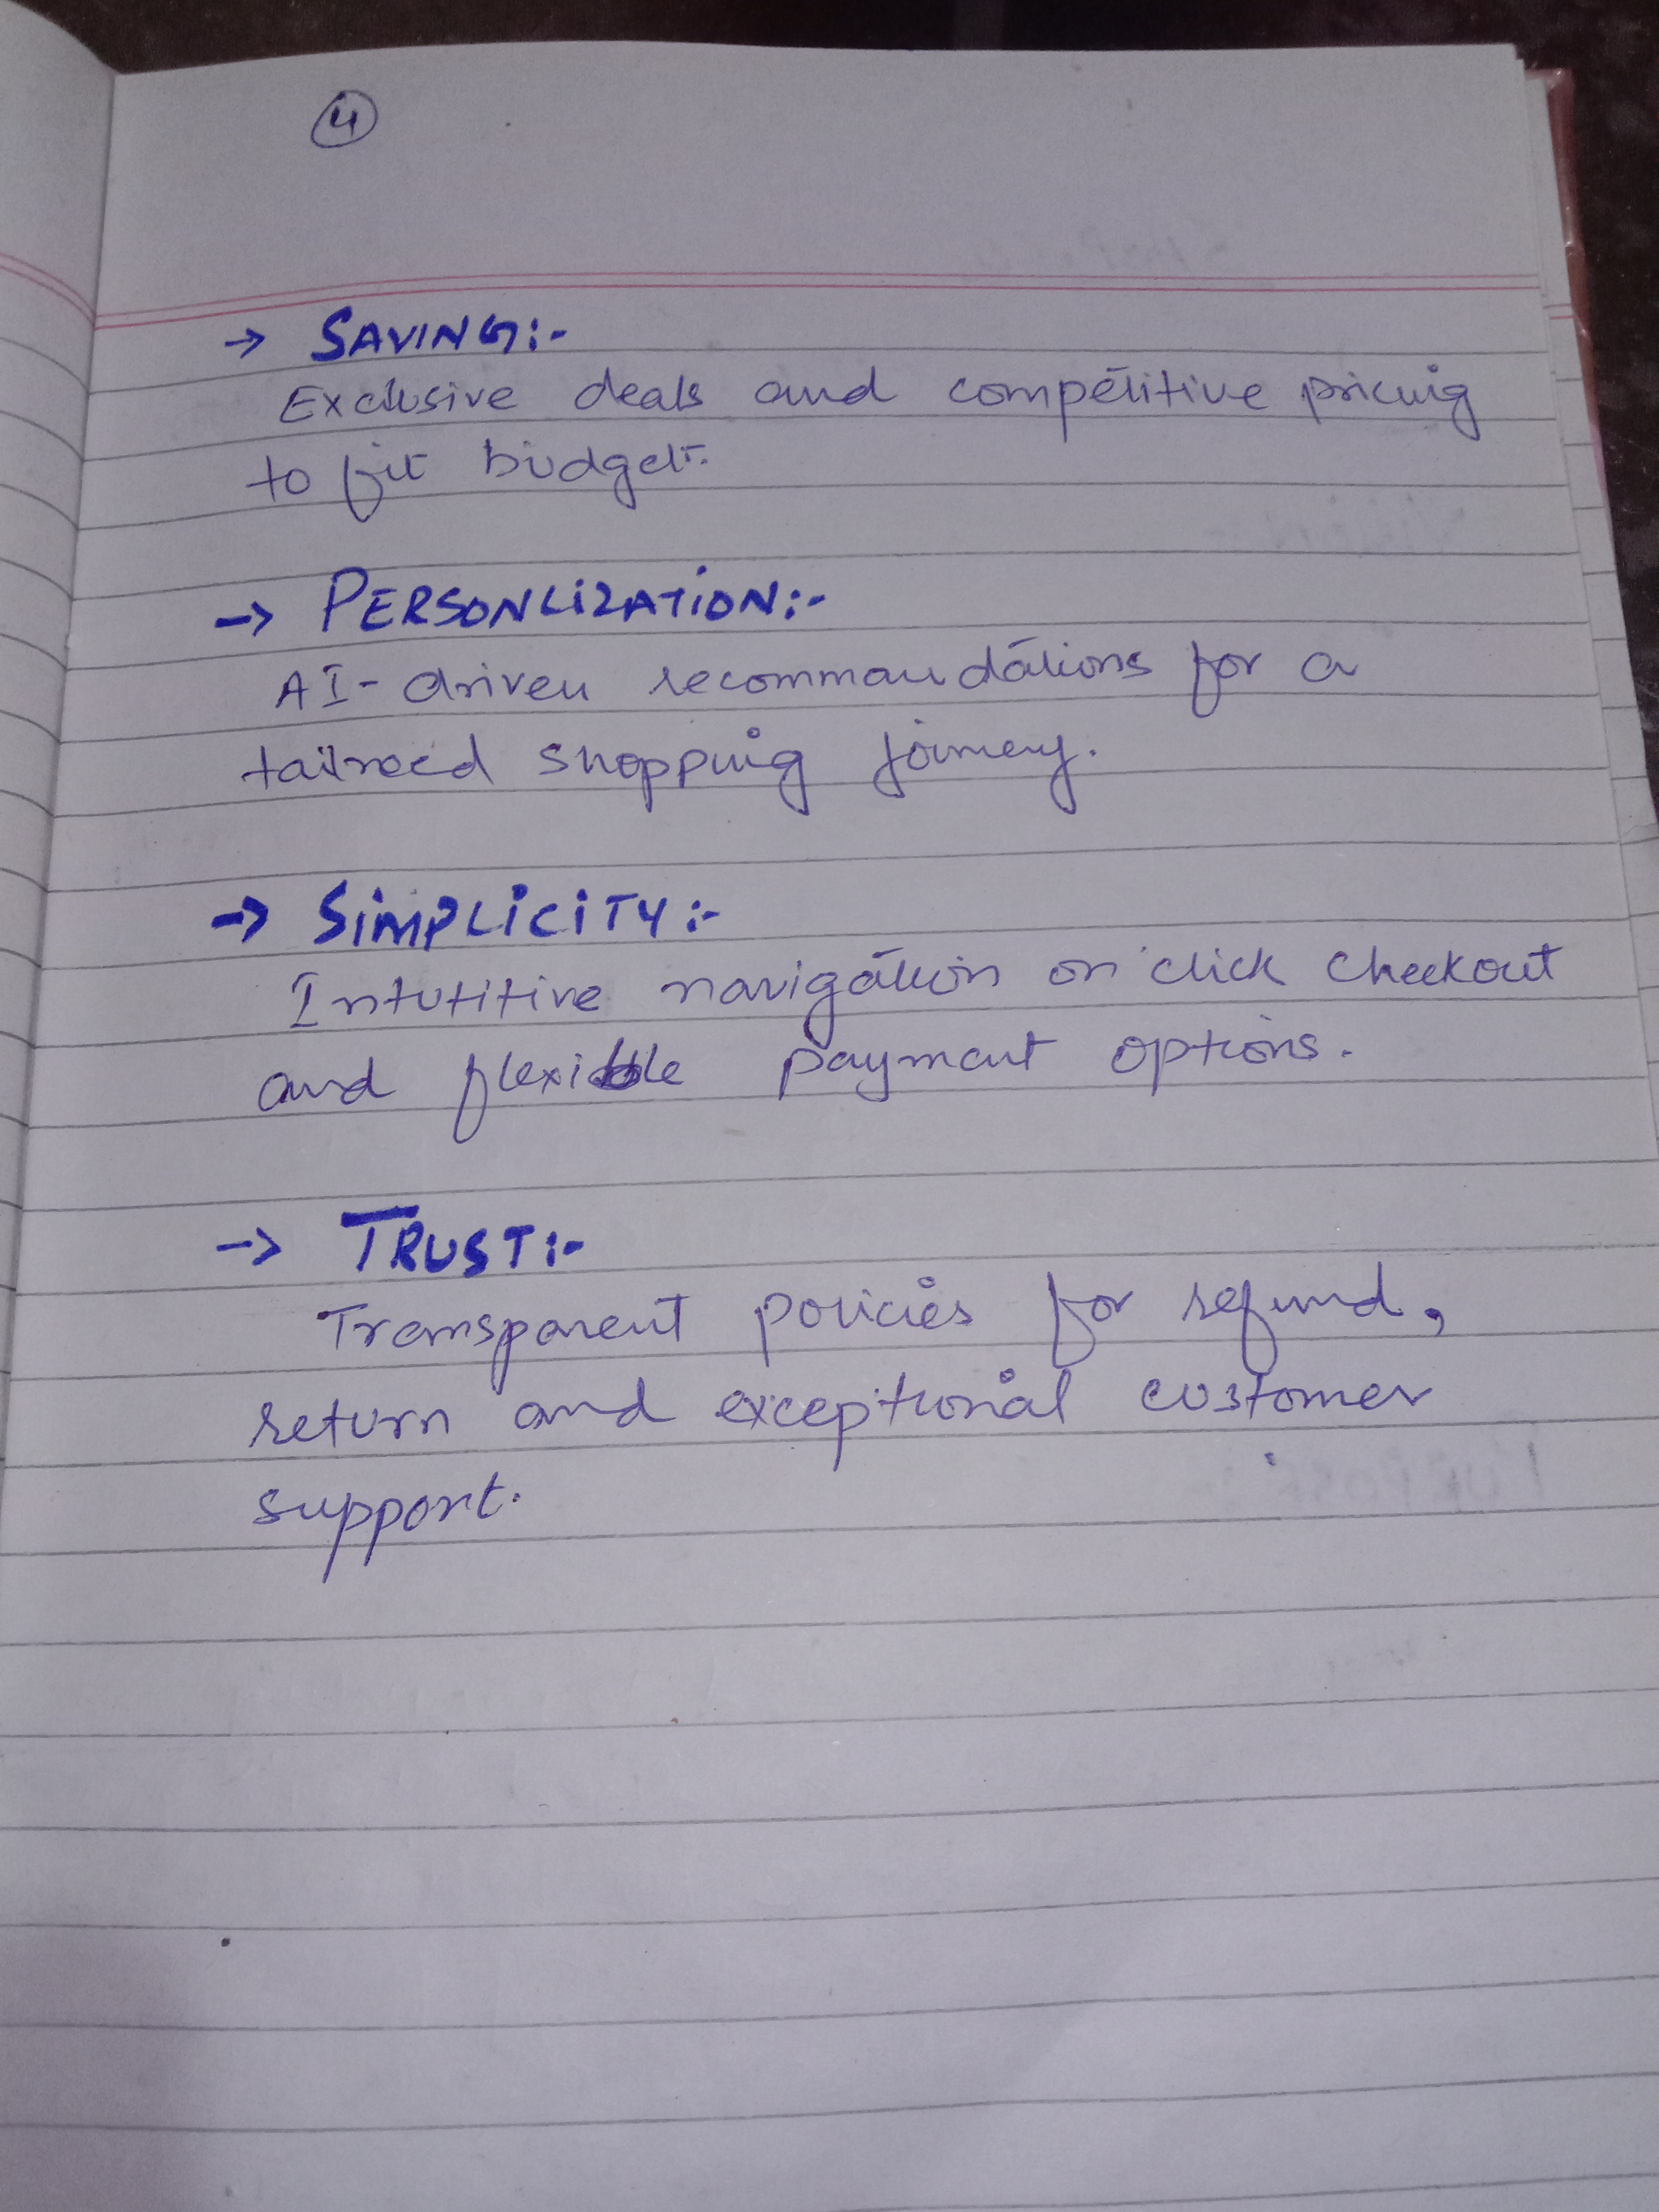 4
→ SAVING:-
Exclusive deals and competitive pricing
to fit budget.
→ PERSONLIZATION:-
AI-driven recommandations for a
tailreed shopping journey.
→ SIMPLICITY:-
Intutitive navigation on click checkout
and flexible payment options.
→ TRUST:-
Transparent policies for refund,
return and exceptional customer
support.